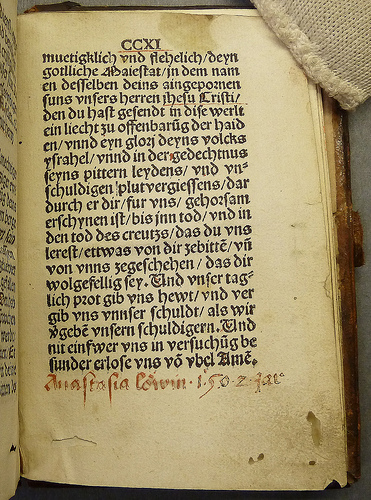 CCXI
muetigklich vnd flehelich/deyn
gotliche Maiestat/jn dem nam
en desselben deins aingepornen
suns vnsers herren jhesu Cristi/
den du hast gesendt in dise werlt
ein liecht zu offenbarũg der haid
en/vnnd eyn glorj deyns volcks
ysrahel/vnnd in der gedechtnus
seyns pittern leydens/vnd vn⸗
schuldigen plutvergiessens/dar
durch er dir/fur vns/gehorsam
erschynen ist/bis jnn tod/vnd in
den tod des creutzs/das du vns
lerest/ettwas von dir zebittẽ/vñ
von vnns zegeschehen/das dir
wolgefellig sey. Vnd vnser tag⸗
lich prot gib vns hewt/vnd ver
gib vns vnnser schuldt/als wir
vŏgebẽ vnsern schuldigern. Vnd
nit einfwer vns in versuchũg be
sunder erlose vns vŏ vbel Amẽ.
Anastasia 1502 Jar